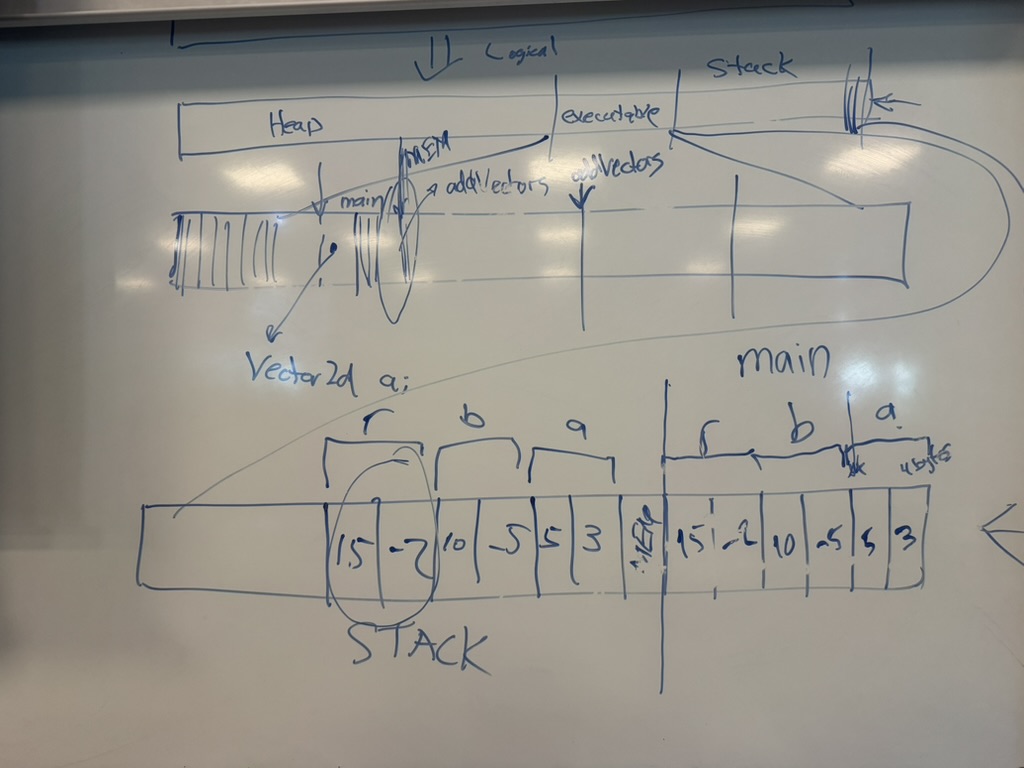 Logical
Stack
Heap
executable
MEM
main
addVectors
addVectors
Vector2d a;
main
r b a
r b a
4 bytes
15 -2 10 -5 5 3 MEM 15 -2 10 -5 5 3
STACK